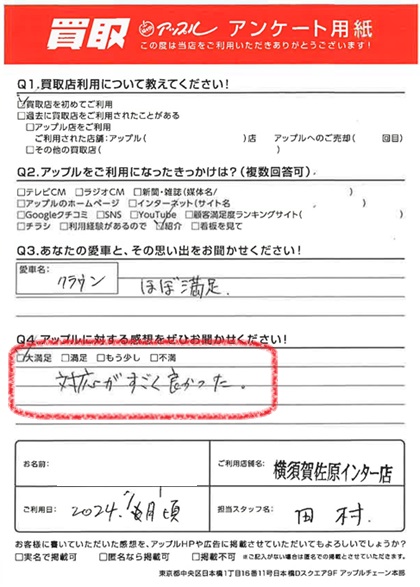 買取 アップル アンケート用紙
この度は当店をご利用いただきありがとうございます!
Q1.買取店利用について教えてください!
☑買取店を初めてご利用
□過去に買取店をご利用されたことがある
□アップル店をご利用
ご利用された店舗:アップル( )店 アップルへのご売却( 回目)
□その他の買取店( )
Q2.アップルをご利用になったきっかけは?(複数回答可)
□テレビCM □ラジオCM □新聞・雑誌(媒体名/ )
□アップルのホームページ □インターネット(サイト名 )
□Googleクチコミ □SNS □YouTube □顧客満足度ランキングサイト( )
□チラシ □利用経験があるので ☑紹介 □看板を見て
Q3.あなたの愛車と、その思い出をお聞かせください!
愛車名:
クラウン ほぼ満足.
Q4.アップルに対する感想をぜひお聞かせください!
☑大満足 □満足 □もう少し □不満
対応がすごく良かった。
お名前:
ご利用店舗名: 横須賀佐原インター店
ご利用日: 2024. 月頃
担当スタッフ名: 田村.
お客様に書いていただいた感想を、アップルHPや広告に掲載させていただいてもよろしいでしょうか?
□実名で掲載可 □匿名なら掲載可 □掲載不可 ※ご記入がない場合は匿名での掲載とさせていただきます。
東京都中央区日本橋1丁目16番11号日本橋Dスクエア9F アップルチェーン本部